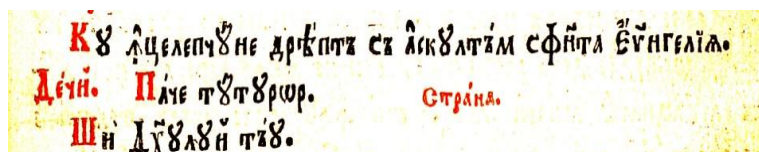 Кꙋ ꙟ҆целепчю́не дрѣ́птъ съ а҆скꙋлтъ́м сфн҃та Е҆ѵ҃нгелїѧ.
Де́чи҆. Па́че тꙋ́тꙋрѡр. Стра́на.
Ши҆ Дх҃ꙋлꙋй тъ́ꙋ.